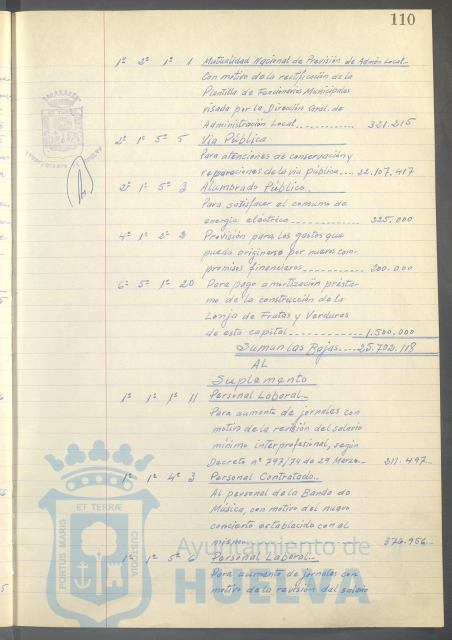 110
1º 2º 1º 1 Mutualidad Nacional de Previsión de Admón Local.-
Con motivo de la rectificación de la
Plantilla de Funcionarios Municipales
visada por la Dirección Gral. de
Administración Local............ 321.215
2º 1º 5º 5 Vía Pública
Para atenciones de conservación y
reparaciones de la vía pública.... 22.107.417
2º 1º 5º 3 Alumbrado Público.-
Para satisfacer el consumo de
energía eléctrica -------------- 225.000
4º 1º 2º 3 Provisión para los gastos que
pueda originarse por nuevos com-
promisos financieros ------------ 200.000
6º 5º 1º 20 Para pago amortización présta-
mo de la construcción de la
Lonja de Frutas y Verduras
de esta capital ---------------- 1.500.000
Suman las Bajas.... 25.702.118
AL
Suplemento
1º 1º 1º 11 Personal Laboral.-
Para aumento de jornales con
motivo de la revisión del salario
mínimo interprofesional, según
Decreto nº 797/74 de 29 Marzo.- 211.497.-
1º 1º 4º 3 Personal Contratado.-
Al personal de la Banda de
Música, con motivo del nuevo
concierto establecido con el
mismo ---------------- 376.956.-
1º 1º 5º 6 Personal Laboral.-
Para aumento de jornales con
motivo de la revisión del salario
ET TERRÆ
PORTUS MARIS
CUSTODIA
Ayuntamiento de
HUELVA